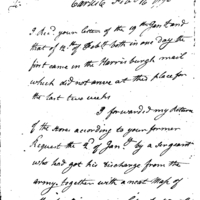 Carlisle Feb 14 1796
I Rec.d your letter of the 29th Jan.y and
that of 12th of Feb.y both in one day the
first came in the Harrisburgh mail
which did not arrive at this place for
the last two weeks
I forwarded my Return
of the Arms according to your former
Request the 2d of Jan.y by a Sergeant
who had got his discharge from the
army, together with a neat Map of